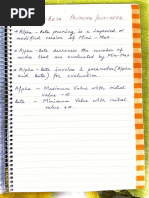 Beta Pruning Algorithm
* Alpha - beta pruning is a improved or
modified version of Mini - Max
* Alpha - beta decreases the number of
nodes that are evaluated by Mini-Max
* Alpha - beta involves 2 parameter (Alpha
and beta) for evaluation
Alpha - Maximum Value with initial
value -∞
Beta - Minimum Value with initial
value +∞